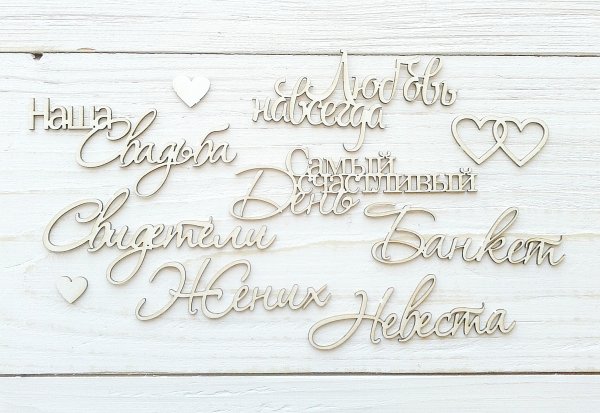 Наша
Свадьба
Любовь
навсегда
Самый
счастливый
День
Свидетели
Банкет
Жених
Невеста